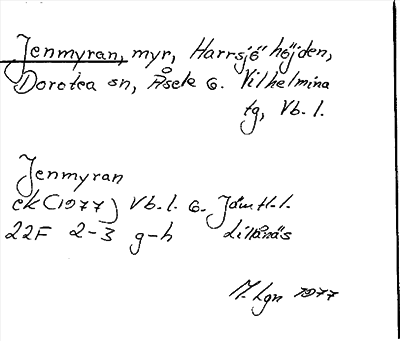 Jenmyran, myr, Harrsjöhöjden,
Dorotea sn, Åsele o. Vilhelmina
tg, Vb. l.
Jenmyran
ek (1977) Vb. l. o. Jämtl. l.
22F 2-3 g-h Lillånäs
M. Lgn 1977